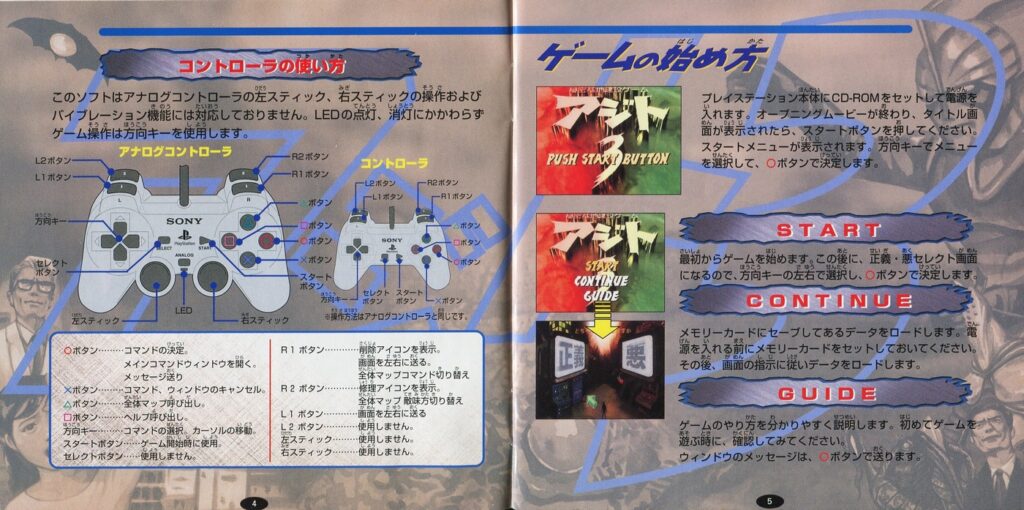 コントローラの使い方
このソフトはアナログコントローラの左スティック、右スティックの操作および
バイブレーション機能には対応しておりません。LEDの点灯、消灯にかかわらず
ゲーム操作は方向キーを使用します。
アナログコントローラ
L2ボタン
L1ボタン
方向キー
セレクト
ボタン
左スティック
LED
右スティック
R2ボタン
R1ボタン
△ボタン
□ボタン
○ボタン
×ボタン
スタート
ボタン
L
R
SONY
PlayStation
SELECT
START
ANALOG
コントローラ
L2ボタン
L1ボタン
R2ボタン
R1ボタン
△ボタン
□ボタン
○ボタン
×ボタン
SONY
方向キー
セレクト
ボタン
スタート
ボタン
※操作方法はアナログコントローラと同じです。
○ボタン………コマンドの決定。
メインコマンドウィンドウを開く。
メッセージ送り
×ボタン………コマンド、ウィンドウのキャンセル。
△ボタン………全体マップ呼び出し。
□ボタン………ヘルプ呼び出し。
方向キー………コマンドの選択、カーソルの移動。
スタートボタン……ゲーム開始時に使用。
セレクトボタン……使用しません。
R1ボタン…………削除アイコンを表示。
画面を左右に送る。
全体マップコマンド切り替え
R2ボタン…………修理アイコンを表示。
全体マップ 敵味方切り替え
L1ボタン…………画面を左右に送る
L2ボタン…………使用しません。
左スティック………使用しません。
右スティック………使用しません。
4
ゲームの始め方
アジト
3
PUSH START BUTTON
プレイステーション本体にCD-ROMをセットして電源を
入れます。オープニングムービーが終わり、タイトル画
面が表示されたら、スタートボタンを押してください。
スタートメニューが表示されます。方向キーでメニュー
を選択して、○ボタンで決定します。
アジト
START
CONTINUE
GUIDE
正義
悪
START
最初からゲームを始めます。この後に、正義・悪セレクト画面
になるので、方向キーの左右で選択し、○ボタンで決定します。
CONTINUE
メモリーカードにセーブしてあるデータをロードします。電
源を入れる前にメモリーカードをセットしておいてください。
その後、画面の指示に従いデータをロードします。
GUIDE
ゲームのやり方を分かりやすく説明します。初めてゲームを
遊ぶ時に、確認してみてください。
ウィンドウのメッセージは、○ボタンで送ります。
5